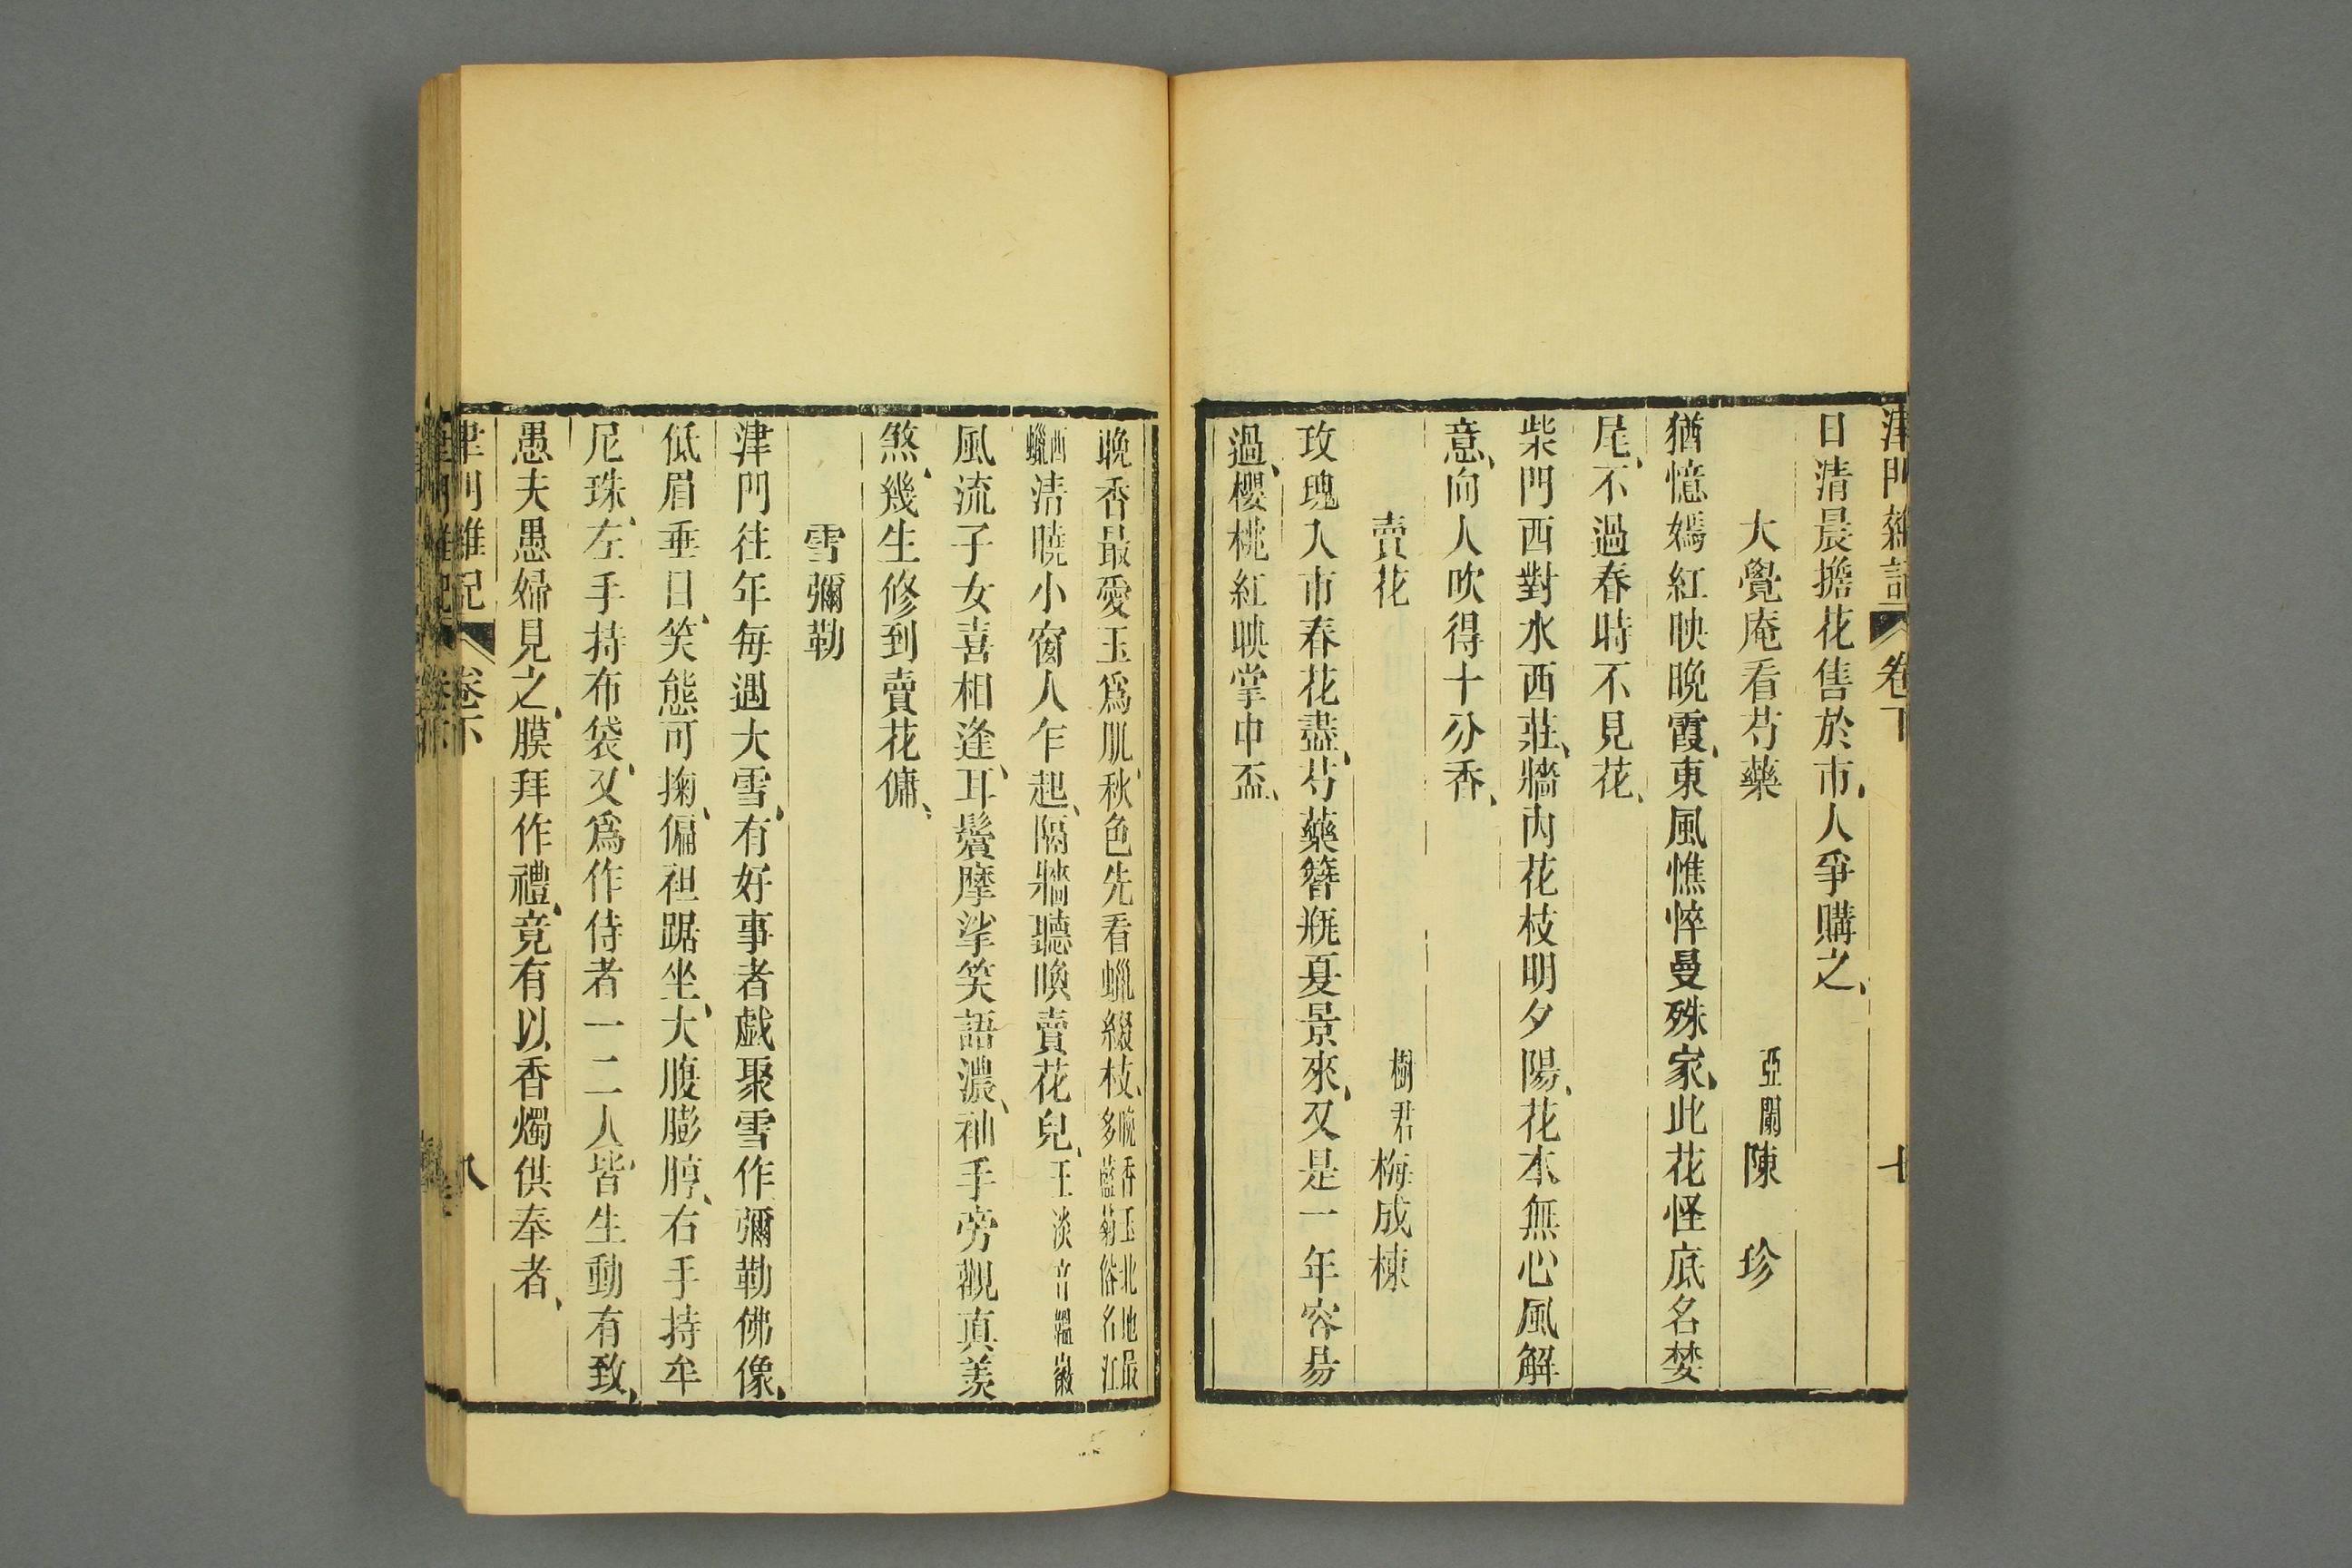 津門雜記 卷下 七
日清晨擔花售於市、人爭購之、
大覺庵看芍藥 亞蘭陳 珍
猶憶嫣紅映晚霞、東風憔悴曼殊家、此花怪底名婪
尾、不過春時不見花、
柴門西對水西莊、牆內花枝明夕陽、花本無心風解
意、向人吹得十分香、
賣花 樹君梅成棟
玫瑰入市春花盡、芍藥簪瓶夏景來、又是一年容易
過、櫻桃紅映掌中盃、
晚香最愛玉爲肌、秋色先看蠟綴枝、晚香玉北地最多藍菊俗名江
西蠟淸曉小窗人乍起、隔牆聽喚賣花兒、王淡音韞徽
風流子女喜相逢、耳鬢摩挲笑語濃、袖手旁觀真羨
煞、幾生修到賣花傭、
雪彌勒
津門往年每遇大雪、有好事者戯聚雪作彌勒佛像、
低眉垂目、笑態可掬、偏袒踞坐、大腹膨脝、右手持牟
尼珠、左手持布袋、又爲作侍者一二人、皆生動有致、
愚夫愚婦見之、膜拜作禮、竟有以香燭供奉者、
津門雜記 卷下 八